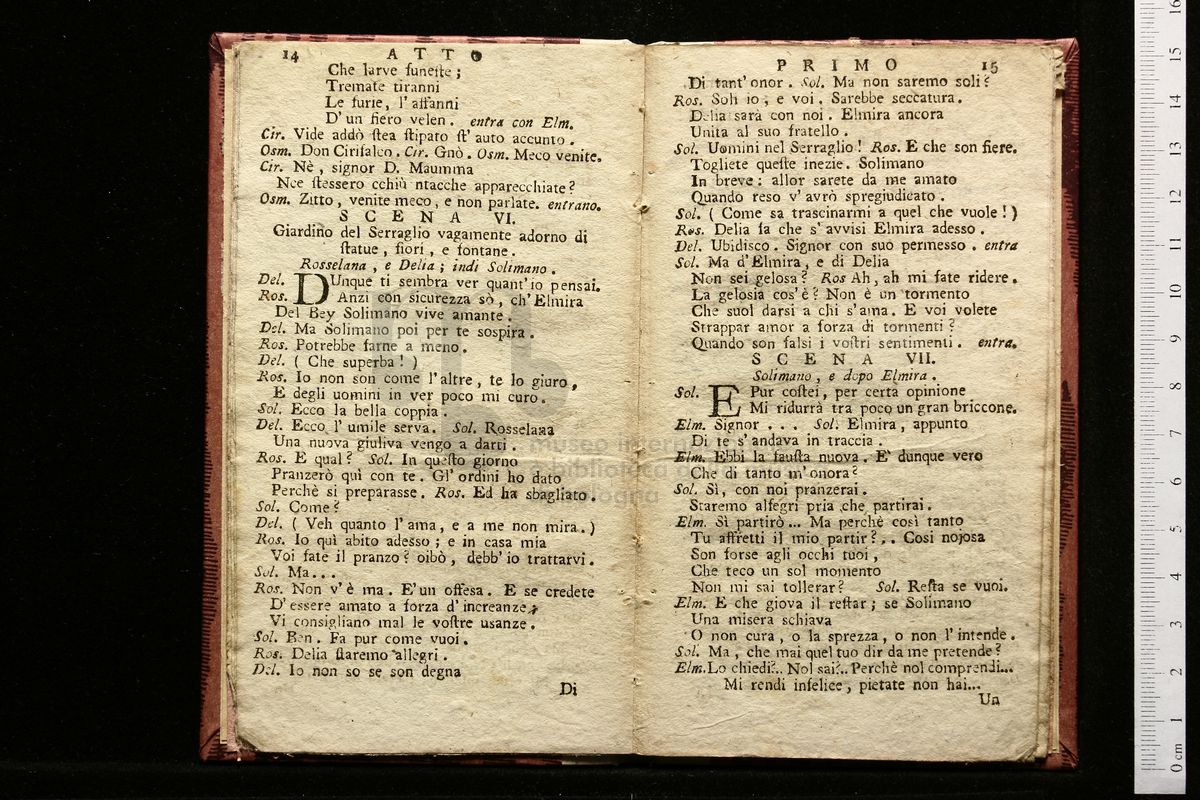 14 ATTO
Che larve funeste;
Tremate tiranni
Le furie, l'affanni
D'un fiero velen. entra con Elm.
Cir. Vide addò stea stipato st'auto accunto.
Osm. Don Cirifalco. Cir. Gnò. Osm. Meco venite.
Cir. Nè, signor D. Maumma
Nce stessero cchiù ntacche apparecchiate?
Osm. Zitto, venite meco, e non parlate. entrano.
SCENA VI.
Giardino del Serraglio vagamente adorno di
statue, fiori, e fontane.
Rosselana, e Delia; indi Solimano.
Del. DUnque ti sembra ver quant'io pensai.
Ros. Anzi con sicurezza sò, ch'Elmira
Del Bey Solimano vive amante.
Del. Ma Solimano poi per te sospira.
Ros. Potrebbe farne a meno.
Del. (Che superba!)
Ros. Io non son come l'altre, te lo giuro,
E degli uomini in ver poco mi curo.
Sol. Ecco la bella coppia.
Del. Ecco l'umile serva. Sol. Rosselana
Una nuova giuliva vengo a darti.
Ros. E qual? Sol. In questo giorno
Pranzerò quì con te. Gl'ordini ho dato
Perchè si preparasse. Ros. Ed ha sbagliato.
Sol. Come?
Del. (Veh quanto l'ama, e a me non mira.)
Ros. Io quì abito adesso; e in casa mia
Voi fate il pranzo? oibò, debb'io trattarvi.
Sol. Ma...
Ros. Non v'è ma. E'un offesa. E se credete
D'essere amato a forza d'increanze,
Vi consigliano mal le vostre usanze.
Sol. Ben. Fa pur come vuoi.
Ros. Delia staremo allegri.
Del. Io non so se son degna
Di
PRIMO 15
Di tant'onor. Sol. Ma non saremo soli?
Ros. Soli io, e voi. Sarebbe seccatura.
Delia sarà con noi. Elmira ancora
Unita al suo fratello.
Sol. Uomini nel Serraglio! Ros. E che son fiere.
Togliete queste inezie. Solimano
In breve: allor sarete da me amato
Quando reso v'avrò spregiudicato.
Sol. (Come sa trascinarmi a quel che vuole!)
Ros. Delia fa che s'avvisi Elmira adesso.
Del. Ubidisco. Signor con suo permesso. entra
Sol. Ma d'Elmira, e di Delia
Non sei gelosa? Ros Ah, ah mi fate ridere.
La gelosia cos'è? Non è un tormento
Che suol darsi a chi s'ama. E voi volete
Strappar amor a forza di tormenti?
Quando son falsi i vostri sentimenti. entra.
SCENA VII.
Solimano, e dopo Elmira.
Sol. E Pur costei, per certa opinione
Mi ridurrà tra poco un gran briccone.
Elm. Signor... Sol. Elmira, appunto
Di te s'andava in traccia.
Elm. Ebbi la fausta nuova. E' dunque vero
Che di tanto m'onora?
Sol. Sì, con noi pranzerai.
Staremo allegri pria che partirai.
Elm. Sì partirò... Ma perchè così tanto
Tu affretti il mio partir?.. Così nojosa
Son forse agli occhi tuoi,
Che teco un sol momento
Non mi sai tollerar? Sol. Resta se vuoi.
Elm. E che giova il restar; se Solimano
Una misera schiava
O non cura, o la sprezza, o non l'intende.
Sol. Ma, che mai quel tuo dir da me pretende?
Elm. Lo chiedi?.. Nol sai?.. Perchè nol comprendi...
Mi rendi infelice, pietate non hai...
Un